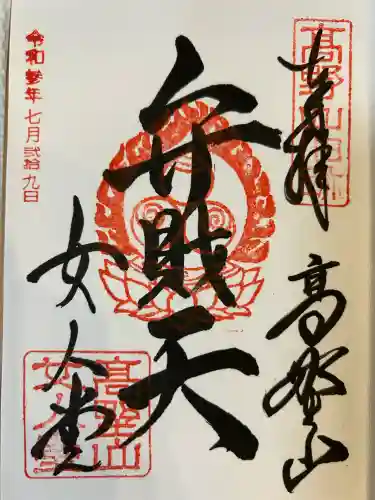 奉拝
高野山
弁財天
女人堂
令和叁年七月弐拾九日
高野山
女人堂